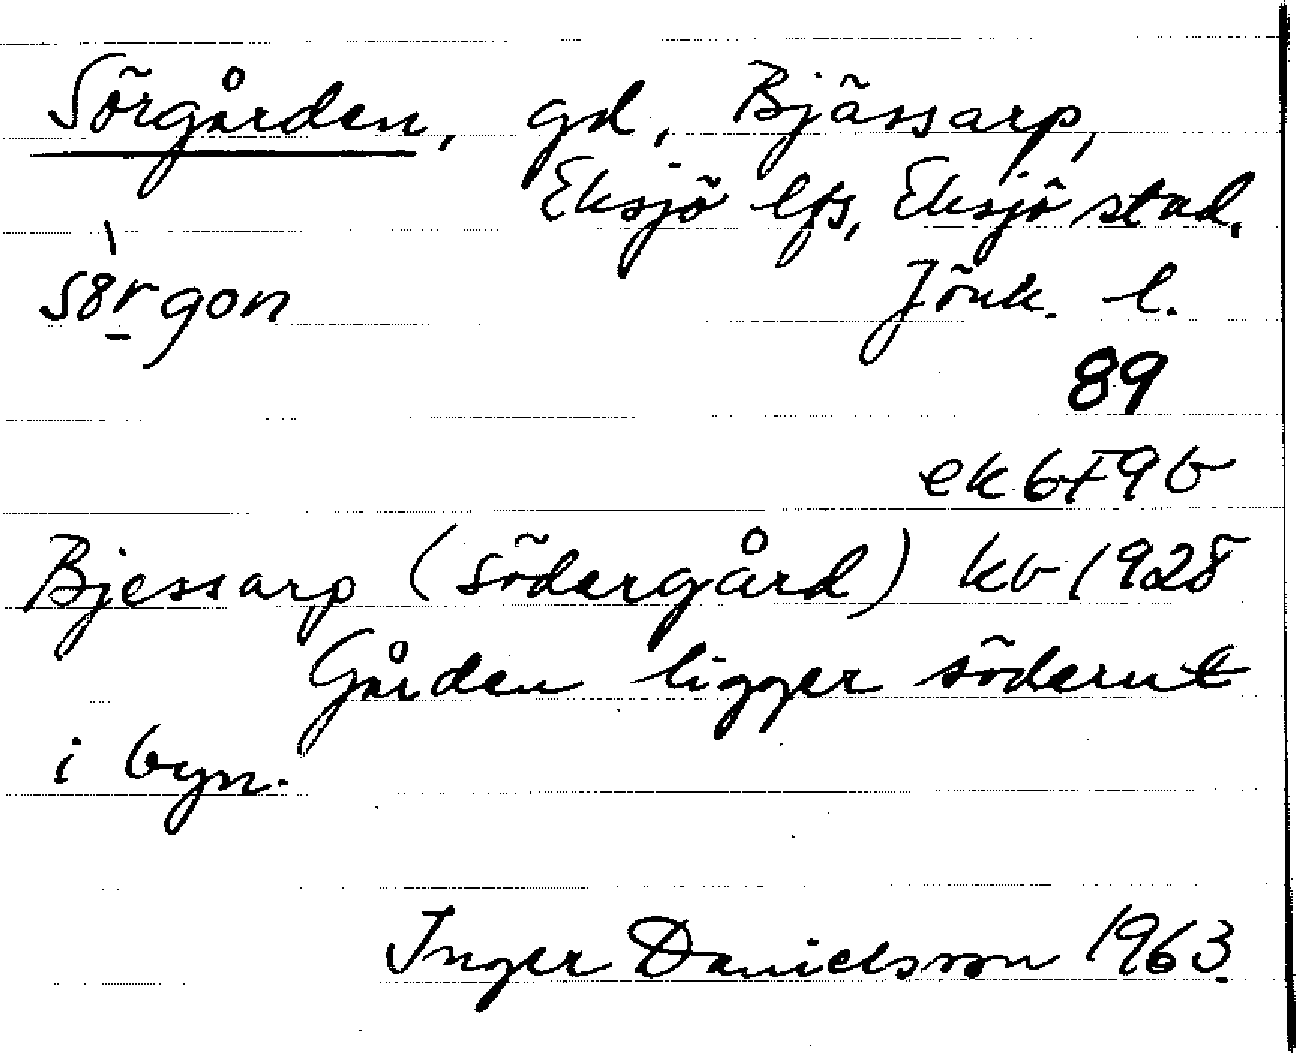 Sörgården, gd, Bjässarp,
Eksjö lfs, Eksjö stad,
Jönk. l.
89
ek 6F9b
Bjessarp (södergård) kb 1928
Gården ligger söderut
i byn.
Inger Danielsson 1963